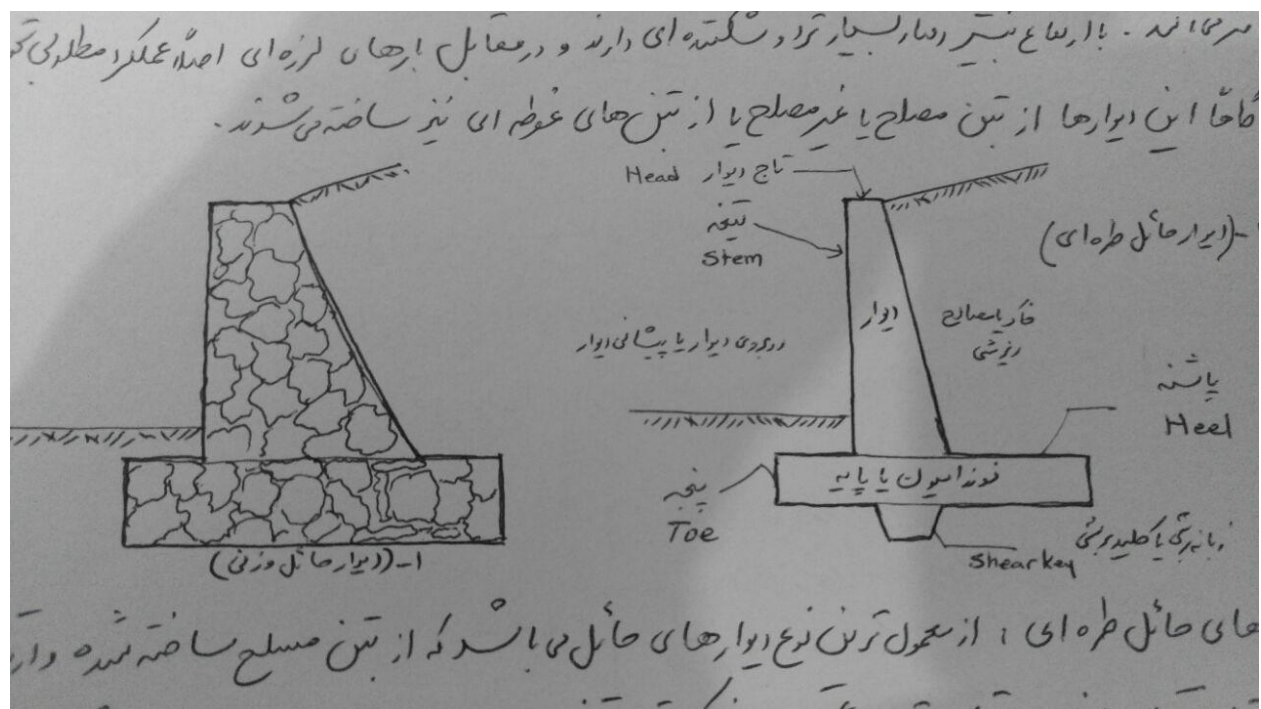 با ارتفاع بیشتر رفتار بسیار ترد و شکننده ای دارند و در مقابل بارهای لرزه ای اصلاً عملکرد مطلوبی
گاهاً این دیوارها از بتن مصلح یا غیر مصلح یا از بتن های غوطه ای نیز ساخته می شوند.
Head تاج دیوار
تیغه
Stem
(دیوار حائل طره ای)
دیوار
خاک یا مصالح
ریزشی
روبروی دیوار یا پیشانی دیوار
پاشنه
Heel
فونداسیون یا پایه
پنجه
Toe
زبانه برشی یا کلید برشی
Shear key
۱-(دیوار حائل وزنی)
های حائل طره ای : از معمول ترین نوع دیوارهای حائل می باشد که از بتن مسلح ساخته شده